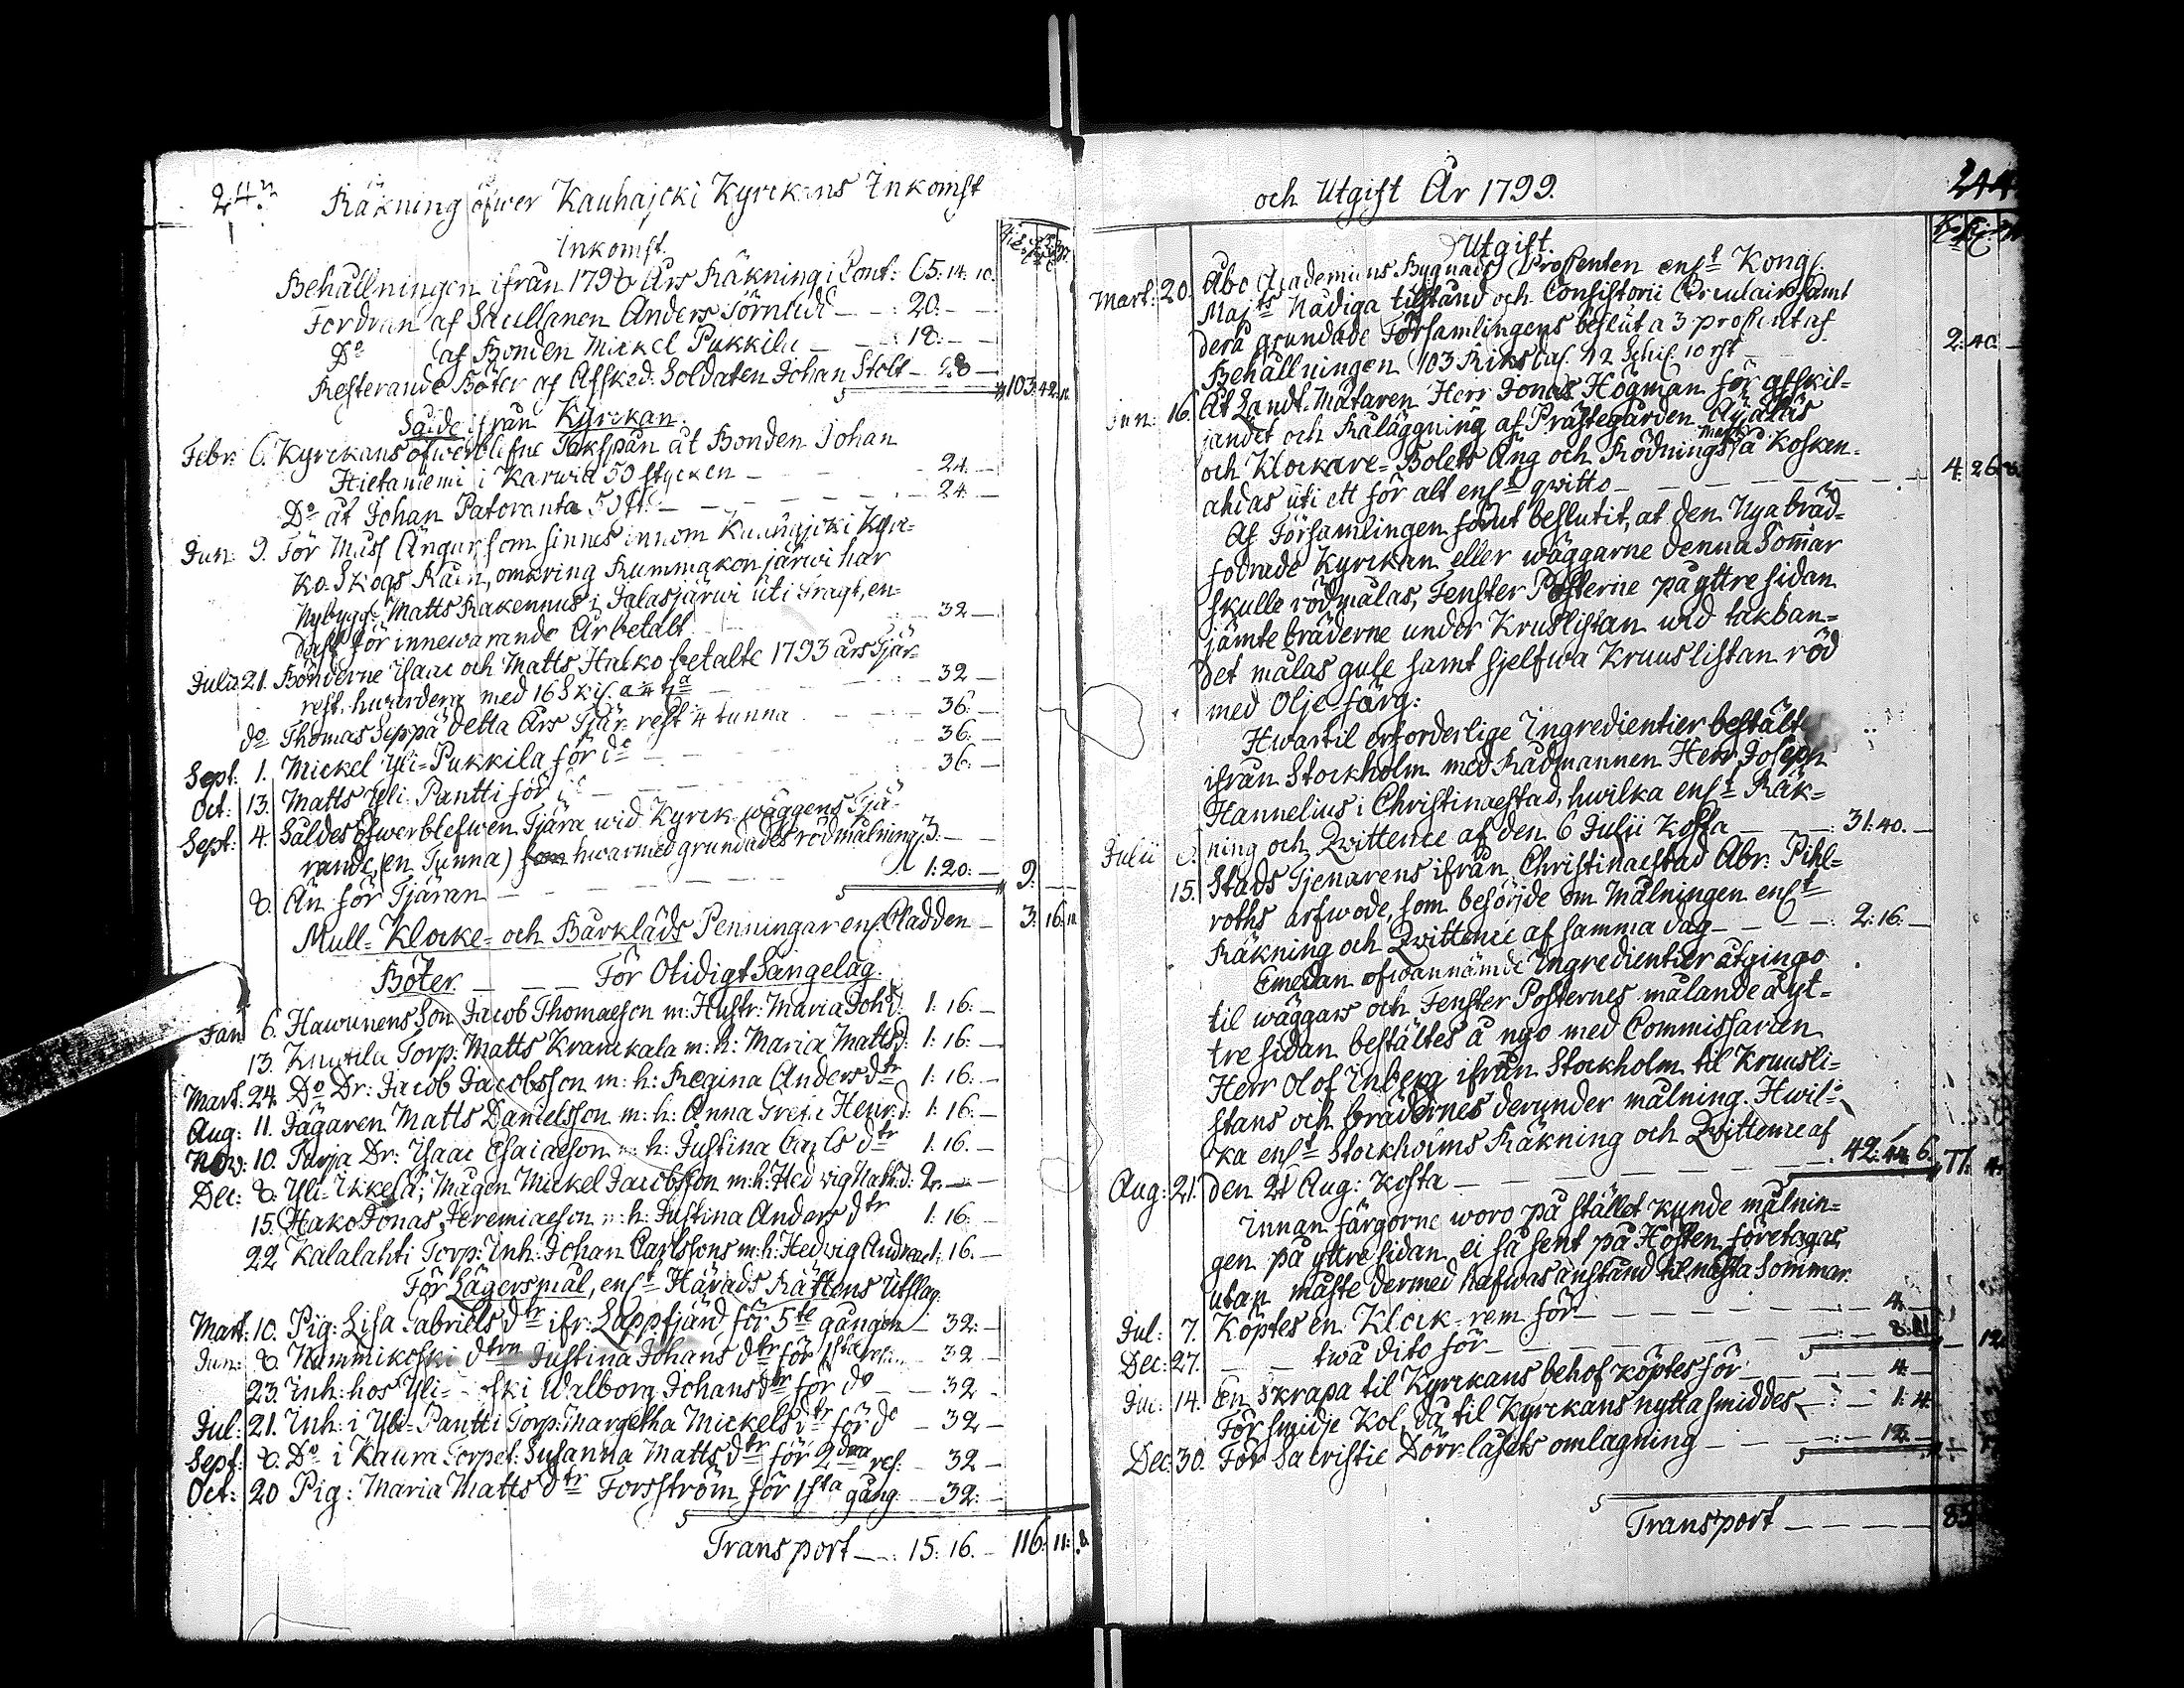 Räkning öfwer Kauhajoki Kyrckans Inkomst
Inkomst.
Behållningen ifrån 1798 Års Räkning i Cont: 65: 14: 10.
Fordran af Anders Törnudd — 20: —
Do af Bonden Mickel Pukkila — 18: —
Resterande Böter af Afsked: Soldaten Johan Stolt — 28 — 103: 42: 10
Sålde ifrån Kyrckan.
Febr: 6. Kyrckans öfwerblefne Takspån åt Bonden Johan
Hietaniemi i Karwia 50 stycken — 24. —
Do åt Johan Patoranta 50 st: — 24 —
Jun: 9. För Muss Ängar som finnes innom Kauhajoki Kyr-
ko-Skogs Råen, omkring Kummakonjärwi har
Nybygg: Matts Rakennus i Jalasjärwi uti Fragt, en-
dast för innewarande År betalt — 32 —
Julii 21. Bönderne Isaac och Matts Hako betalte 1793 års Tjär-
rest. hwardera med 16 Skil. — 32 —
do Thomas Seppä detta Års Tjär-rest 4 tunna — 36: —
Sept: 1. Mickel Yli-Pukkila för do — 36. —
Oct: 13. Matts Yli-Pantti för do — 36: —
Sept: 4. Såldes öfwerblefwen Tjära wid Kyrck-wäggens Tjä-
rande, (en Tunna) som hwarmed grundades rödmålning 3: —
8. Än för Tjäran — 1: 20: — 9: —
Mull- Klocke- och Bårkläds Penningar ens. Cladden — 3: 16: 10
Böter — För Otidigt Sängelag.
Jan 6. Hawunens Son Jacob Thomaeson m: Hustr: Maria Joh: d. 1: 16: —
13. Knutila Torp: Matts Kranckala m: h: Maria Matts d: 1: 16: —
Mart: 24. Do Dr: Jacob Jacobsson m: h: Regina Anders dtr 1: 16: —
Aug: 11. Jägaren Matts Danielsson m: h: Anna Greta Henr: d: 1: 16: —
Now: 10. Dr: Isaac Esaiaeson m: h: Justina Carls dtr 1: 16. —
Dec: 8. Yli-Ikkelä, Mågen Mickel Jacobsson m: h: Hedwig Matts: d: 2: — —
15. Hako Jonas Jeremiaeson m: h: Justina Anders dtr 1: 16. —
22 Kalalahti Torp: Inh: Johan Carlssons m: h: Hedwig Andreae 1: 16. —
För Lägersmål, enst Härads Rättens Utslag.
Mart: 10. Pig: Lisa Gabriels dtr ifr: Lappfjärd för 5te gången — 32: —
Jun: 8. Nummikoski dtrn Justina Johans dtr för 1sta — 32 —
23. Inh: hos Yli- Walborg Johans dtr för do — 32 —
Jul: 21. Inh: i Yli-Pantti Torp: Margetha Mickels dtr för do — 32 —
Sept: 8. Do i Kaura Torpet: Susanna Matts dtr för 2dra res: — 32 —
Oct: 20 Pig: Maria Matts dtr Forsström för 1sta gång — 32: —
Transport — 15: 16. — 116: 11: 8.
och Utgift År 1799.
244
Utgift.
Mart: 20. Åbo Academiens Bygnads Prossenten enst Kongl.
Majts Nådiga tilstånd och Consistorii Circulair samt
derå grundade Församlingens beslut a 3 prossent af
Behållningen 103 Riksdal. 42 Schil. 10 rst — 2: 40: —
Jun: 16. Åt Landt-Mätaren Herr Jonas Högman för afskil-
jandet och Råläggning af Prästegården Äyäläs
och Klockare-Bolets Äng och Rödnings mark på Kosken-
ahdas uti ett för alt enst qwitto — 4: 26:
Af Församlingen förut beslutit, at den Nya bräd-
fodrade Kyrckan eller wäggarne denna Sommar
skulle rödmålas, Fenster Posterne på yttre sidan
jämte bräderne under Kruslistan wid takban-
det målas gule samt sjelfwa Kruuslistan röd
med Olje-färg:
Hwartil erforderlige Ingredientier bestältes
ifrån Stockholm med Rådmannen Herr Joseph
Hannelius i Christinaestad, hwilka enst Räk-
Julii 6. ning och Qwittence af den 6 Julii kosta — 31: 40. —
15. Stads Tjenarens ifrån Christinaestad Abr: Pihl-
roths arfwode, som besörjde om Målningen enst
Räkning och Qwittence af samma dag — 2: 16. —
Emedan ofwannämde Ingredientier åtgingo
til wäggars och Fenster Posternes målande å yt-
tre sidan bestältes å nyo med Commissarien
Herr Olof Inberg ifrån Stockholm til Kruusli-
stans och brädernes derunder målning. Hwil-
ka enst Stockholms Räkning och Qwittence af
Aug: 21. den 21 Aug: kosta — 42: 44: 6. 77: 4.
Innan färgorne woro på stället kunde målnin-
gen på yttre sidan ei så sent på Hösten företagas
utan måste dermed hafwas anstånd til nästa Sommar.
Jul: 7. Köptes en Klock-rem för — 4. —
Dec: 27. — twå dito för — 8: — 12
14. En skrapa til Kyrckans behof köptes för — 4 —
För smidje Kol, då til Kyrckans nytta smiddes — 1: 4.
Dec: 30. För Sacristie Dörr-låsets omlagning — 12. —
Transport —